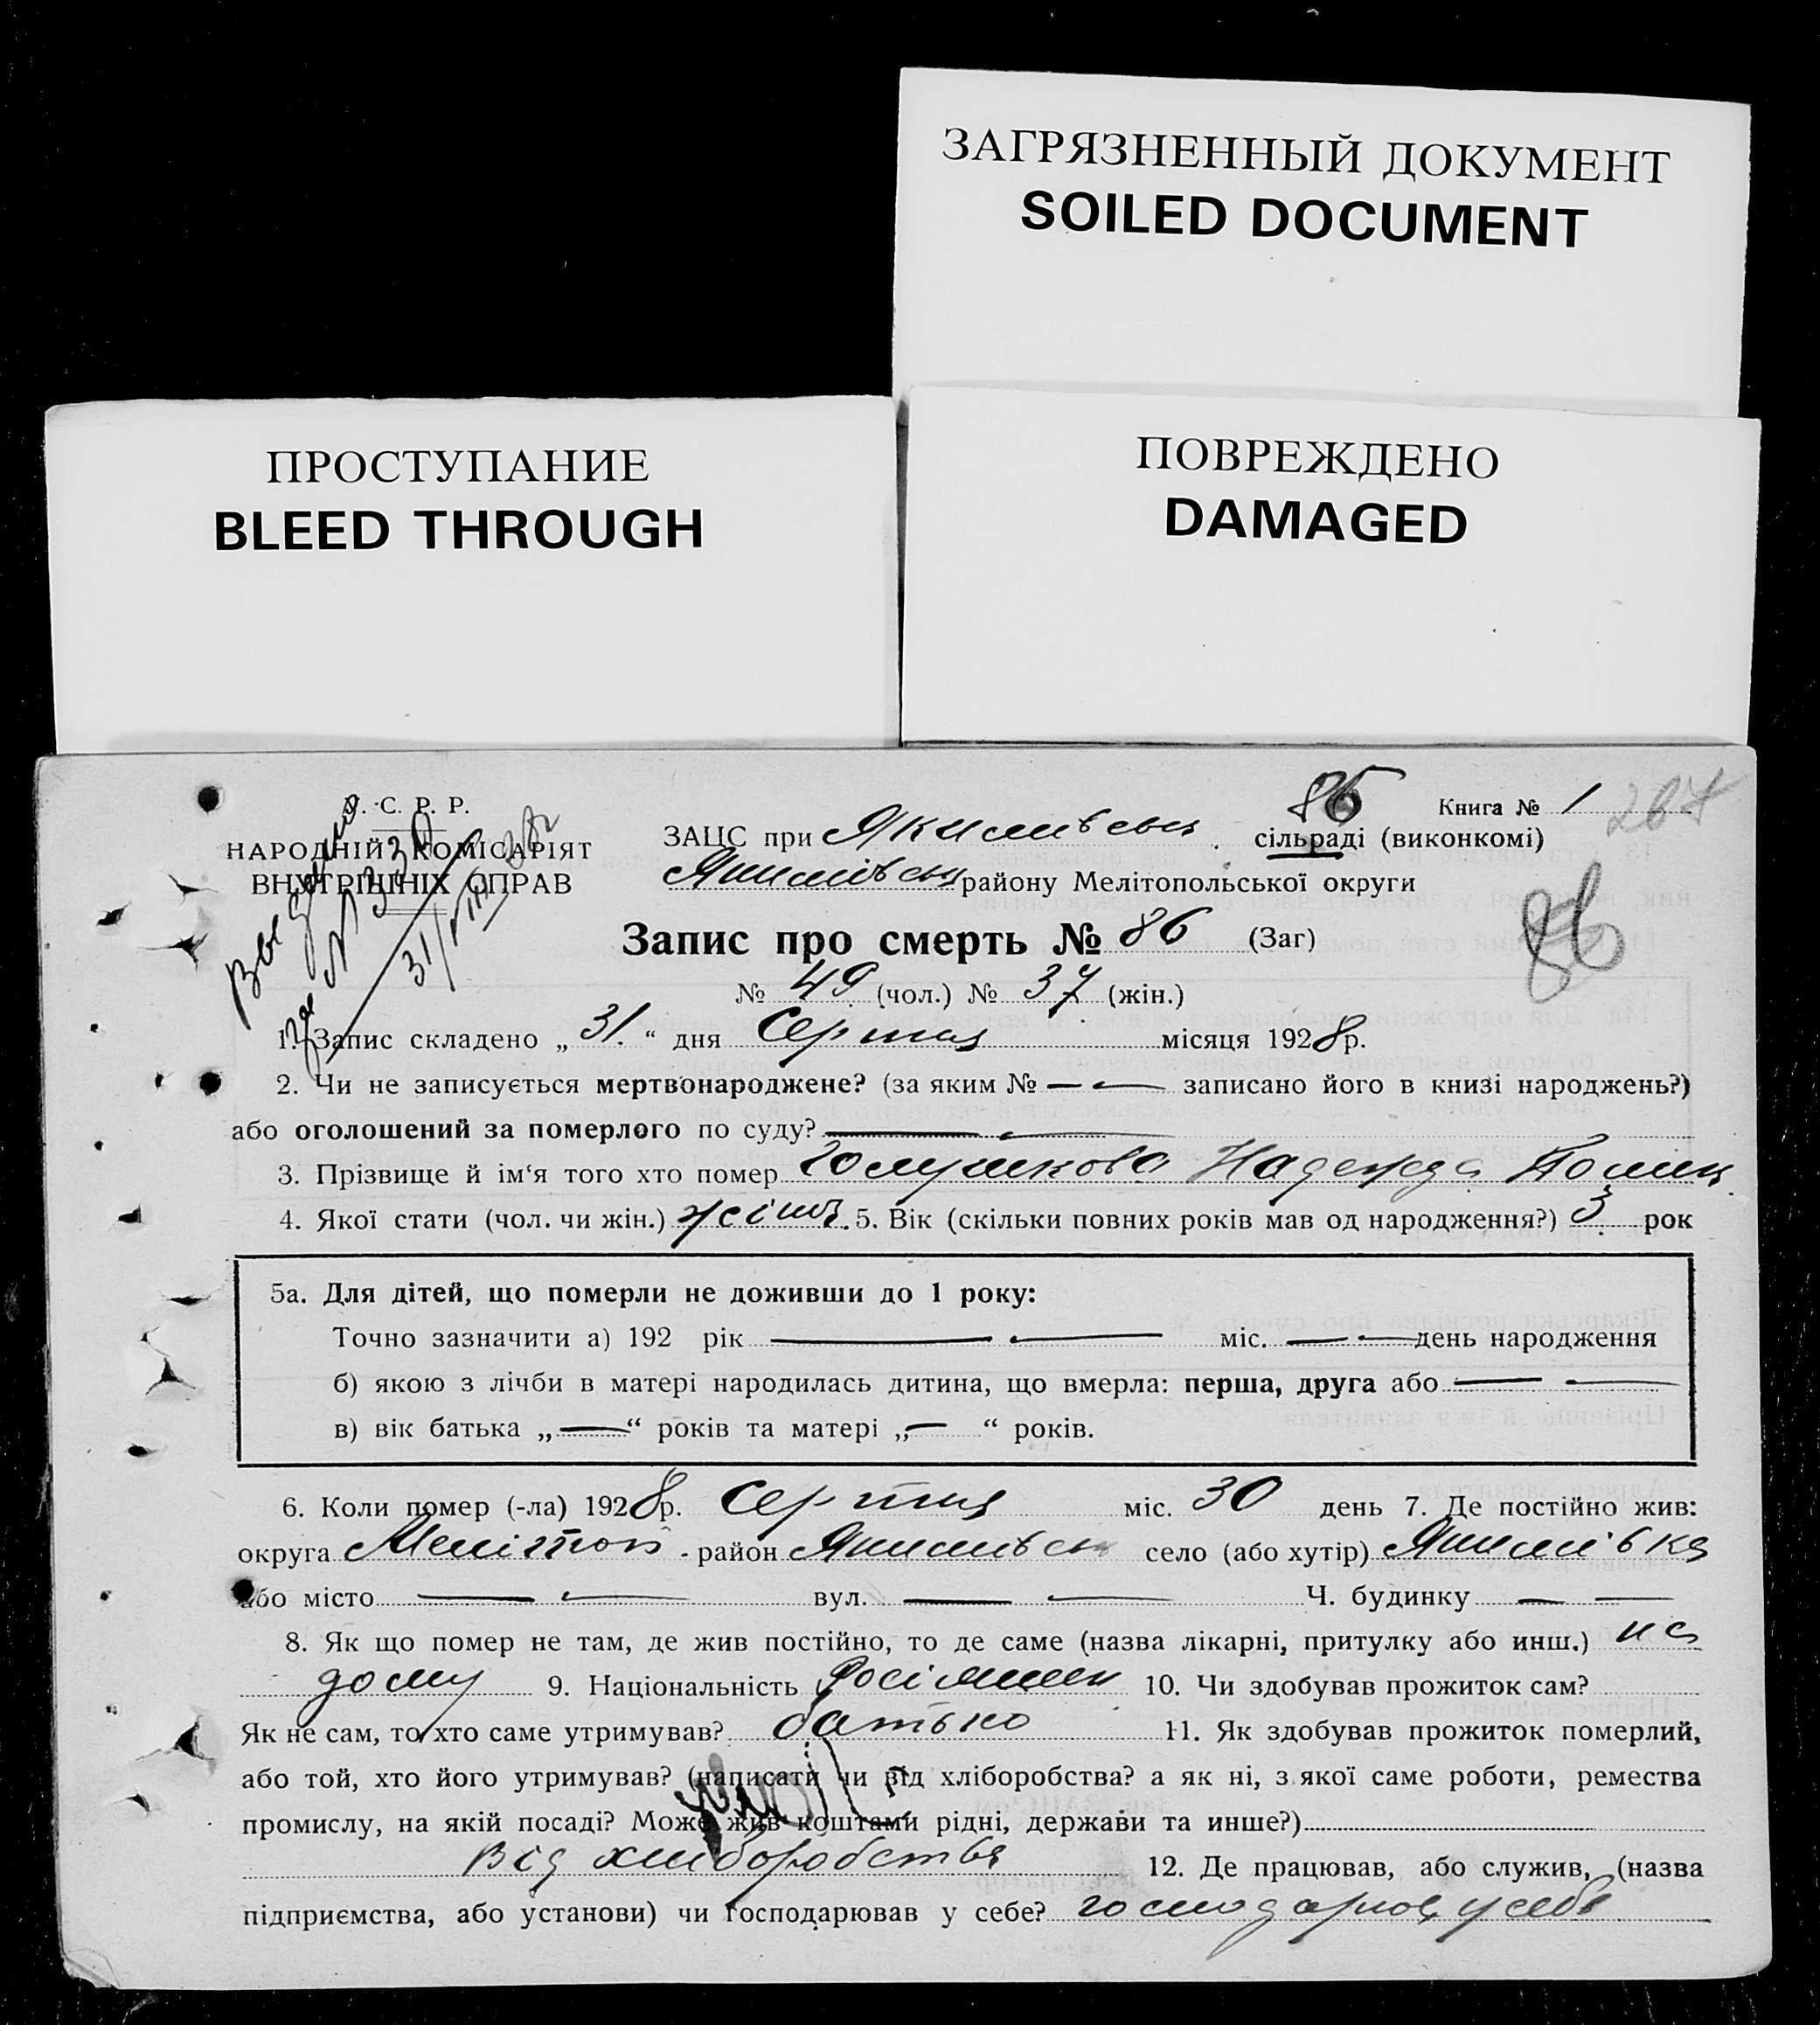 ЗАГРЯЗНЕННЫЙ ДОКУМЕНТ
SOILED DOCUMENT
ПРОСТУПАНИЕ
BLEED THROUGH
ПОВРЕЖДЕНО
DAMAGED
У. С. Р. Р.
НАРОДНІЙ КОМІСАРІЯТ
ВНУТРІШНІХ СПРАВ
86
Книга № 1
ЗАЦС при Якимівськ сільраді (виконкомі)
Якимівськ району Мелітопольської округи
Запис про смерть № 86 (Заг)
86
№ 49 (чол.) № 37 (жін.)
1. Запис складено „ 31. “ дня Серпня місяця 1928 р.
2. Чи не записується мертвонароджене? (за яким № — — записано його в книзі народжень?)
або оголошений за померлого по суду? — —
3. Прізвище й ім‘я того хто помер Надежда
4. Якої стати (чол. чи жін.) жіноч. 5. Вік (скільки повних років мав од народження?) 3 рок
5а. Для дітей, що померли не доживши до 1 року:
Точно зазначити а) 192 рік — — міс. — — день народження
б) якою з лічби в матері народилась дитина, що вмерла: перша, друга або — —
в) вік батька „ — “ років та матері „ — “ років.
6. Коли помер (-ла) 1928 р. Серпня міс. 30 день 7. Де постійно жив:
округа Мелітоп. район Якимівськ село (або хутір) Якимівка
або місто — — вул. — — Ч. будинку — —
8. Як що помер не там, де жив постійно, то де саме (назва лікарні, притулку або инш.) на
дому 9. Національність 10. Чи здобував прожиток сам?
Як не сам, то хто саме утримував? батько 11. Як здобував прожиток померлий,
або той, хто його утримував? (написати чи від хліборобства? а як ні, з якої саме роботи, ремества
промислу, на якій посаді? Може жив коштами рідні, держави та инше?)
від хліборобства 12. Де працював, або служив, (назва
підприємства, або установи) чи господарював у себе? господарював у себе